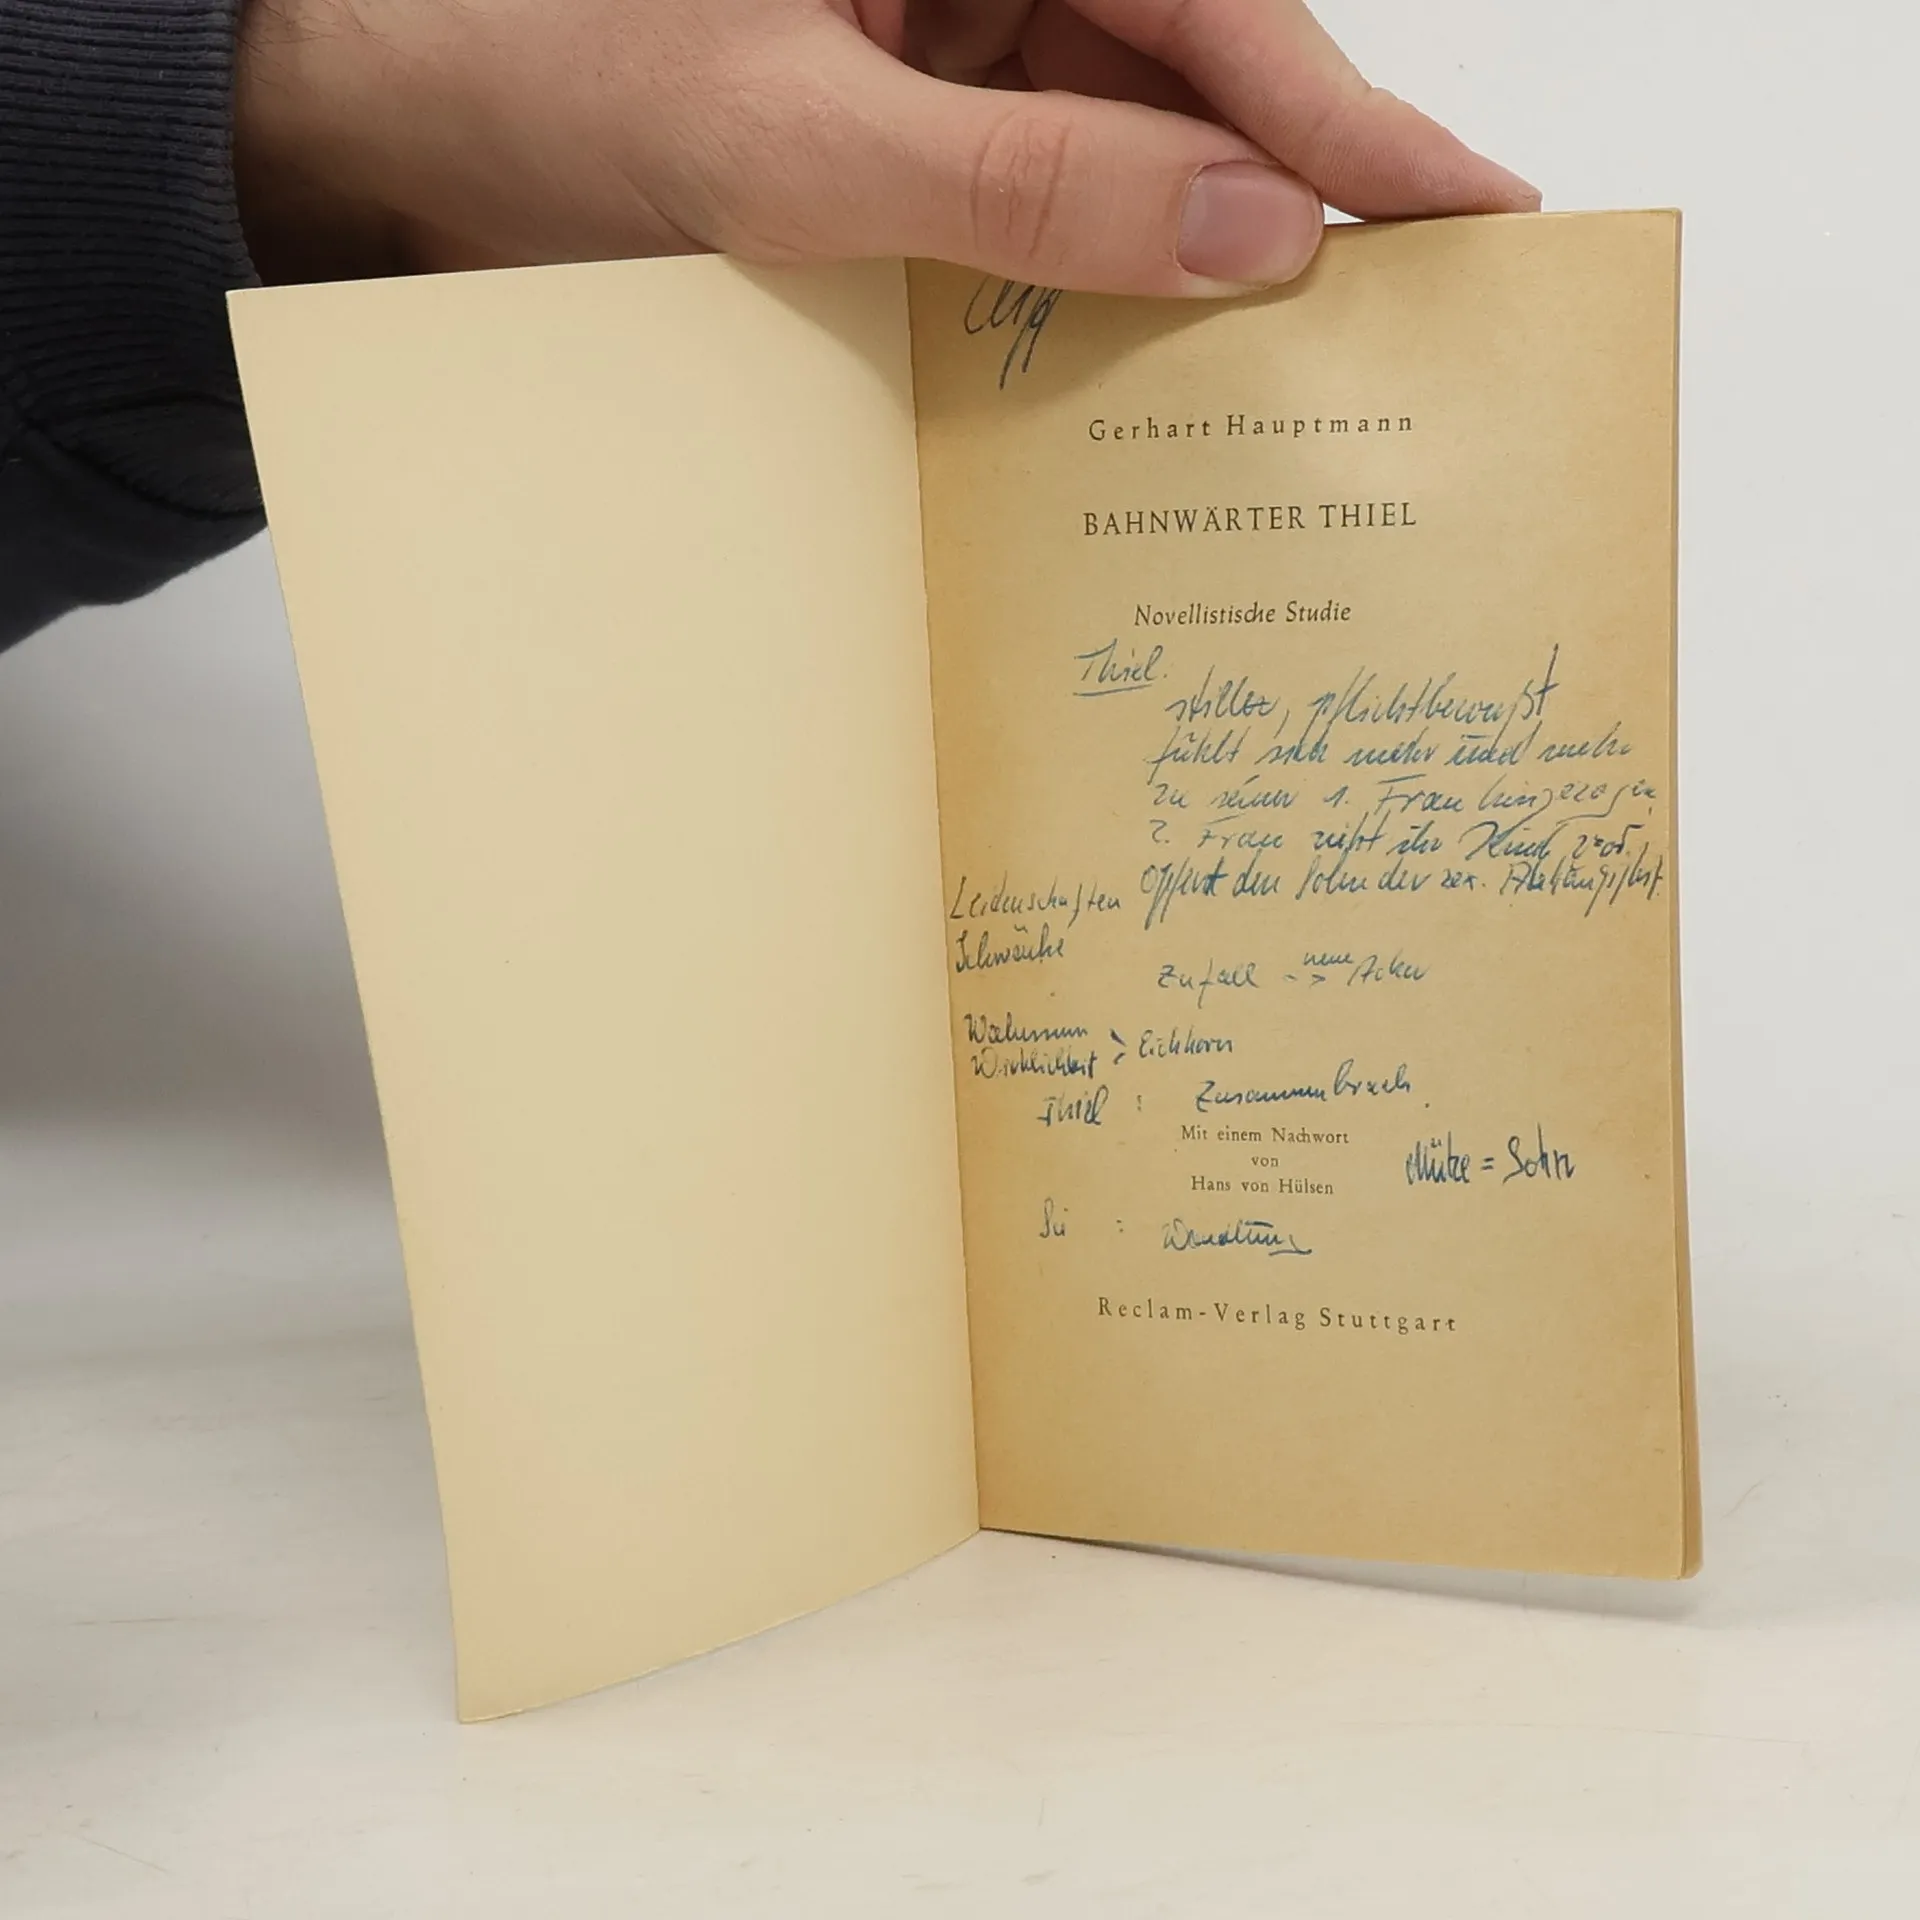 Gerhart Hauptmann
BAHNWÄRTER THIEL
Novellistische Studie
Thiel:
stiller, pflichtbewußt
fühlt sich mehr und mehr
zu seiner 1. Frau hingezogen
2. Frau zieht ihr Kind vor,
opfert den Sohn der sex.
Leidenschaften
Schwäche
Zufall --> neue Acker
Wahnsinn
Wirklichkeit > Eichhorn
Thiel : Zusammenbruch.
Mit einem Nachwort
von
Hans von Hülsen
Mütze = Sohn
Sie : Wandlung
Reclam-Verlag Stuttgart